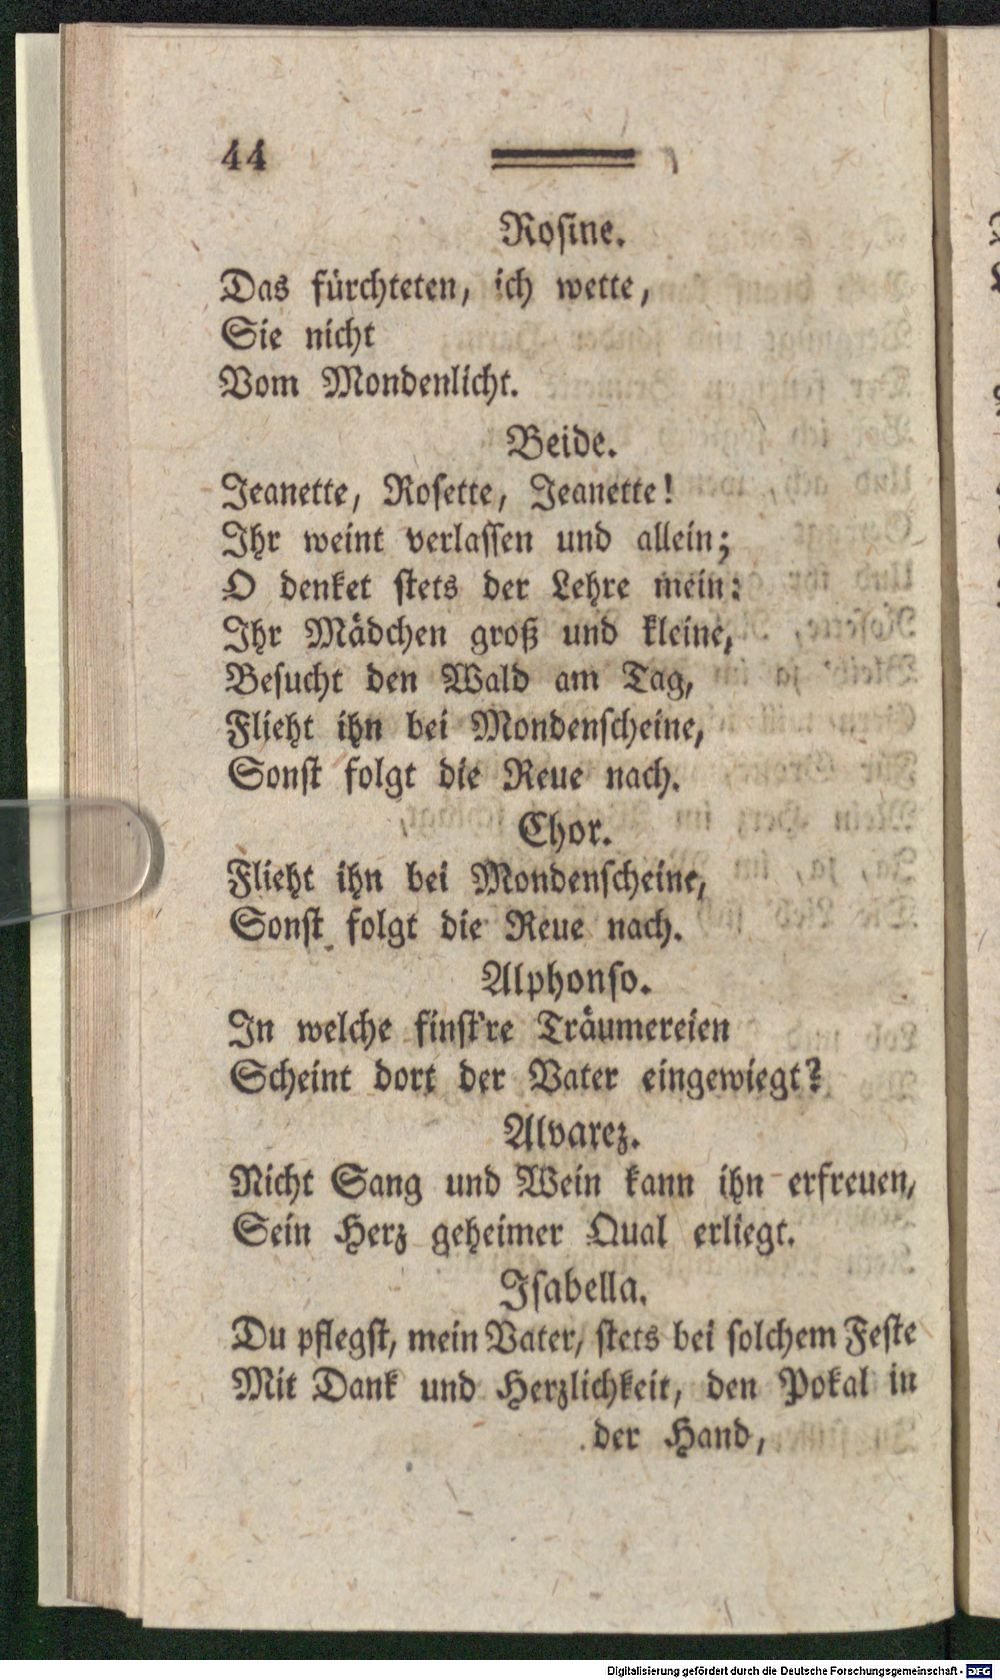 44
Rosine.
Das fürchteten, ich wette,
Sie nicht
Vom Mondenlicht.
Beide.
Jeanette, Rosette, Jeanette!
Ihr weint verlassen und allein;
O denket stets der Lehre mein:
Ihr Mädchen groß und kleine,
Besucht den Wald am Tag,
Flieht ihn bei Mondenscheine,
Sonst folgt die Reue nach.
Chor.
Flieht ihn bei Mondenscheine,
Sonst folgt die Reue nach.
Alphonso.
In welche finst're Träumereien
Scheint dort der Vater eingewiegt?
Alvarez.
Nicht Sang und Wein kann ihn erfreuen,
Sein Herz geheimer Qual erliegt.
Isabella.
Du pflegst, mein Vater, stets bei solchem Feste
Mit Dank und Herzlichkeit, den Pokal in
der Hand,
Digitalisierung gefördert durch die Deutsche Forschungsgemeinschaft - DFG